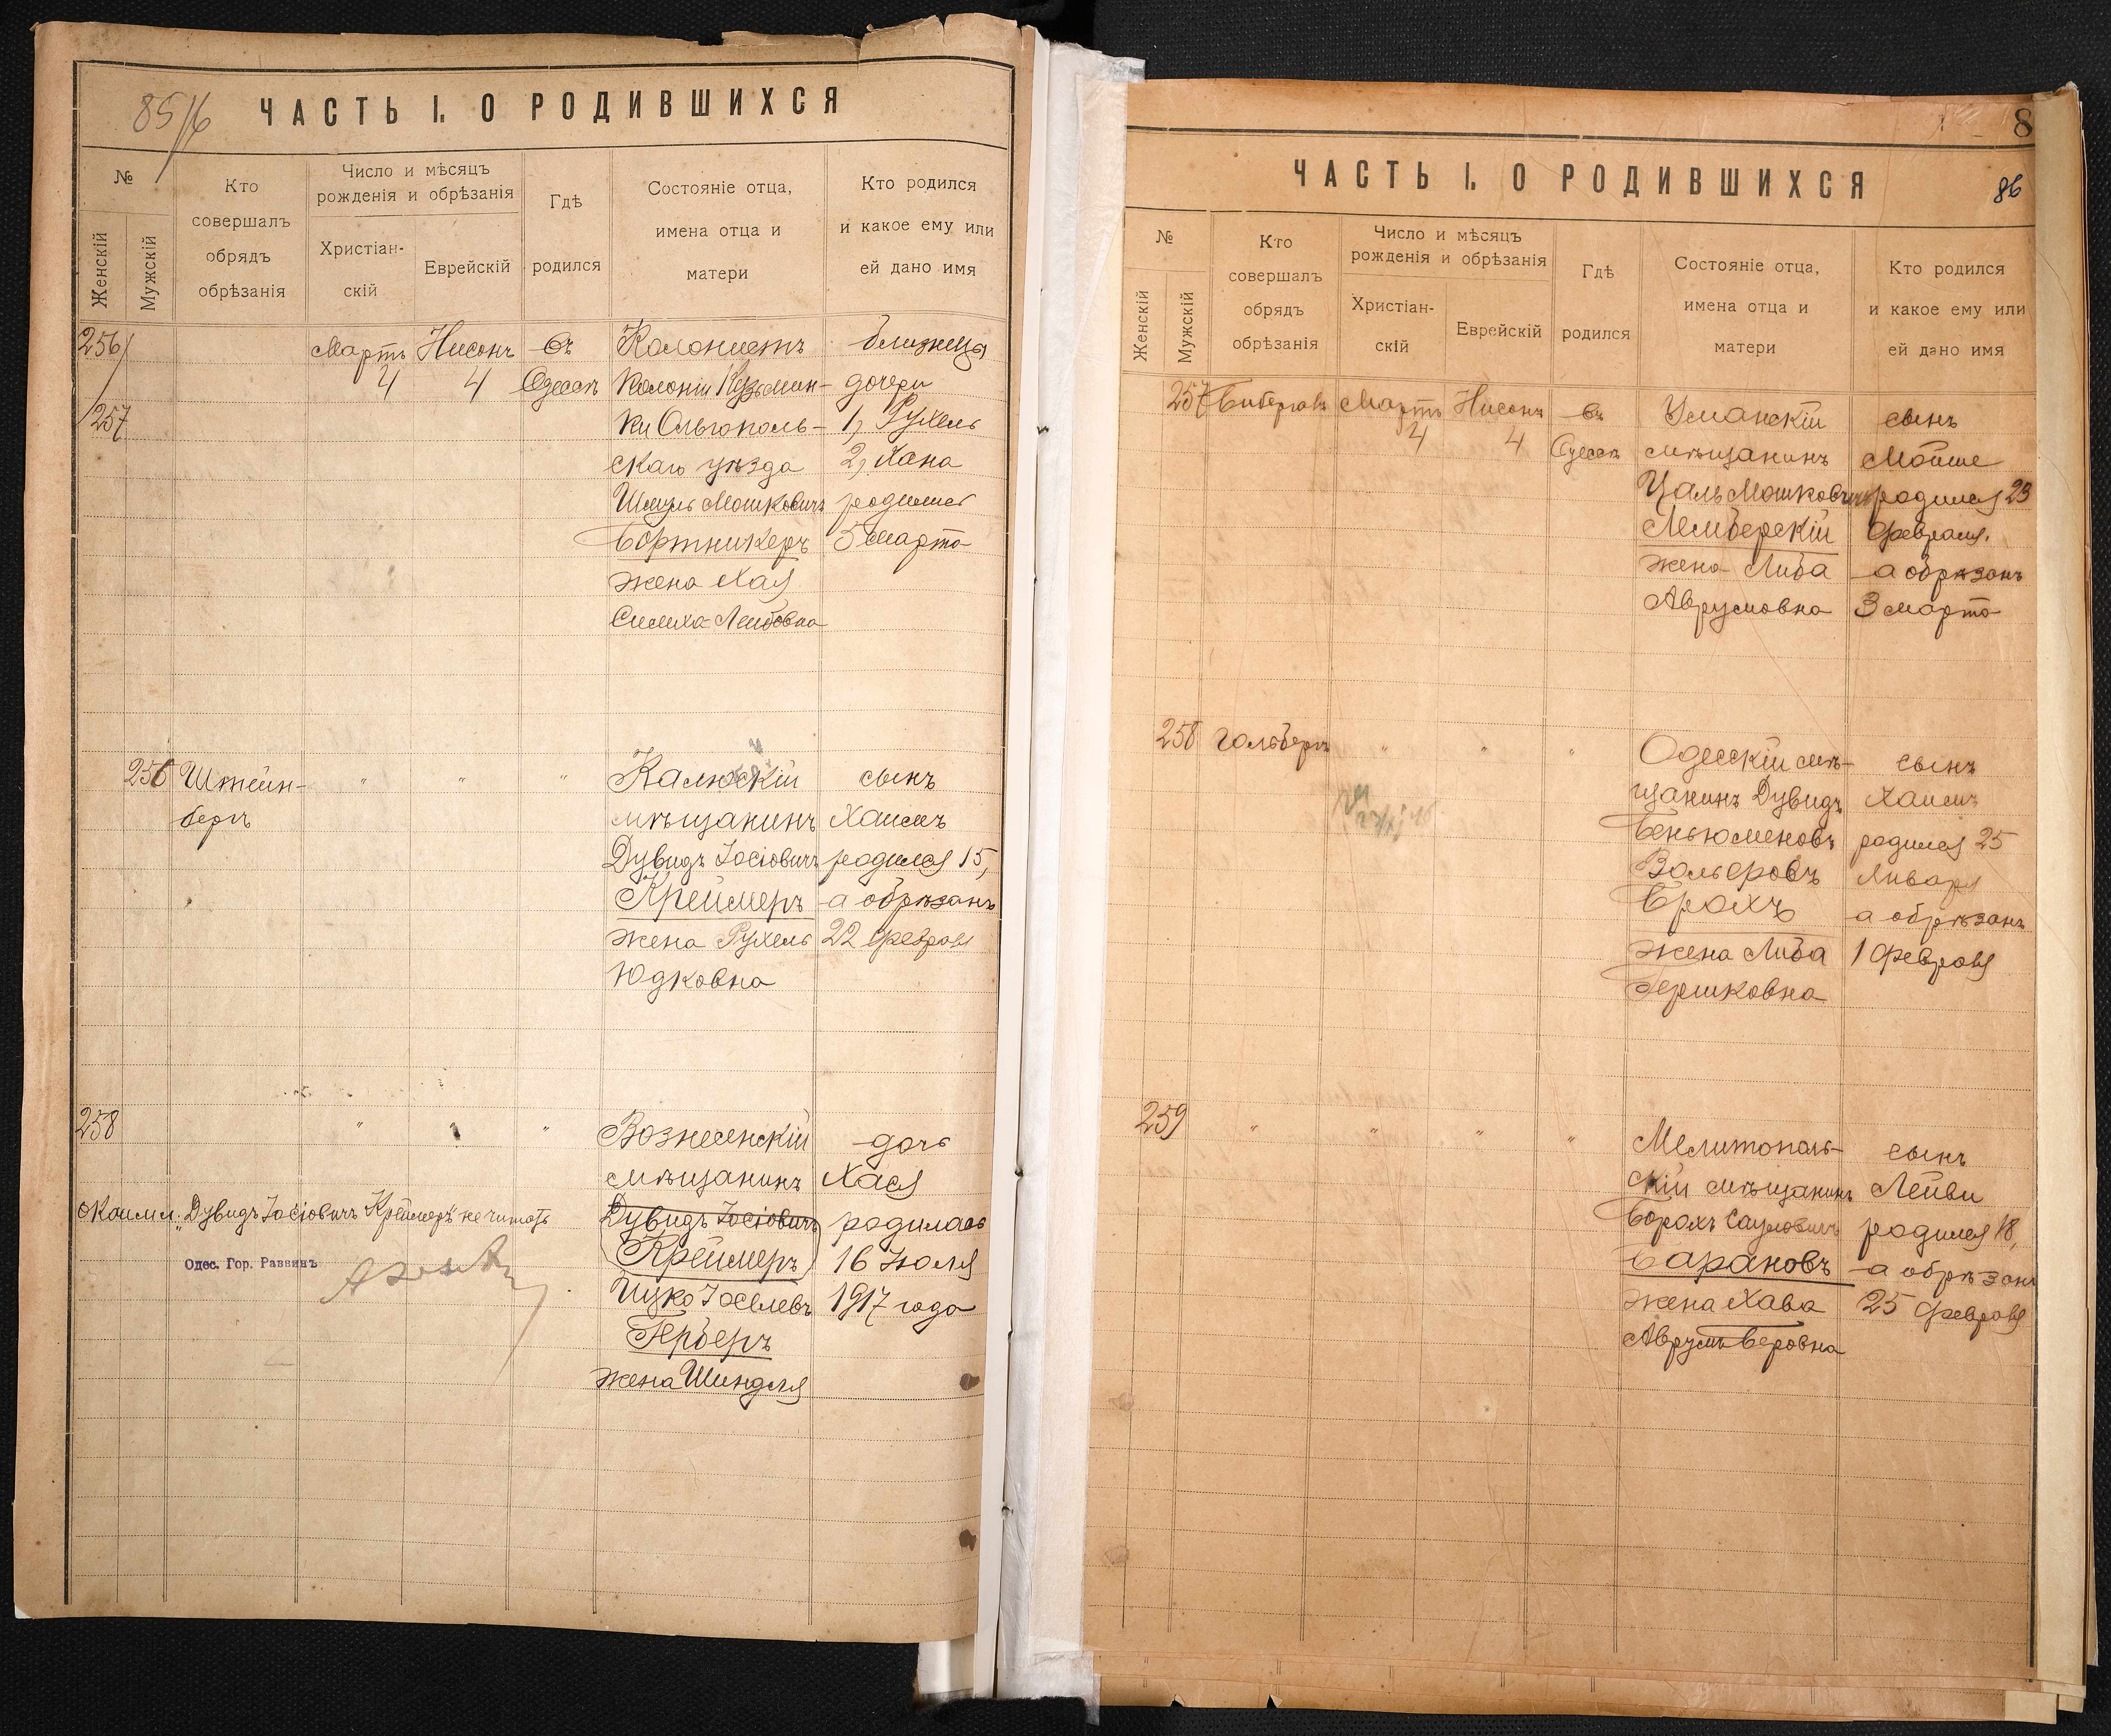 85/6
ЧАСТЬ I. О РОДИВШИХСЯ
№
Женскій
Мужскій
Кто
совершалъ
обрядъ
обрѣзанія
Число и мѣсяцъ
рожденія и обрѣзанія
Христіан-
скій
Еврейскій
Гдѣ
родился
Состояніе отца,
имена отца и
матери
Кто родился
и какое ему или
ей дано имя
256/ Мартъ Нисонъ въ Колонистъ близнецы
4 4 Одессѣ колоніи Кузьмин- дочери
/257 ки Ольгополь- 1, Рухель
скаго уѣзда 2, Хана
Шмуль Мошковичъ родились
Бортникеръ 5 марта
жена Хая
Симиха-Лейбовна
256 Штейн- " " " Калюскій сынъ
бергъ мѣщанинъ Хаимъ
Дувидъ Іосіовичъ родился 15,
Креймеръ а обрѣзанъ
жена Рухель 22 февраля
Юдковна
258 " " " Вознесенскій дочь
мѣщанинъ Хася
Дувидъ Іосіовичъ родилась
Креймеръ 16 Іюля
Ицко Іоселевъ 1917 года
Герберъ
жена Шиндля
"Дувидъ Іосіовичъ Креймеръ" не читать
Одес. Гор. Раввинъ
8
86
ЧАСТЬ I. О РОДИВШИХСЯ
№
Женскій
Мужскій
Кто
совершалъ
обрядъ
обрѣзанія
Число и мѣсяцъ
рожденія и обрѣзанія
Христіан-
скій
Еврейскій
Гдѣ
родился
Состояніе отца,
имена отца и
матери
Кто родился
и какое ему или
ей дано имя
257 Мартъ Нисонъ въ Уманскій сынъ
4 4 Одессѣ мѣщанинъ Мойше
Цаль Мошковичъ родился 23
Лемберскій февраля.
жена Либа а обрѣзанъ
Аврумовна 3 марта
258 Гольбергъ " " " Одесскій мѣ- сынъ
щанинъ Дувидъ Хаимъ
Беньюменовъ родился 25
Вольфовъ Января
Брохъ а обрѣзанъ
жена Либа 1 февраля
Гершковна
259 " " " " Мелитополь- сынъ
скій мѣщанинъ Лейви
Борохъ Сауловичъ родился 18,
Барановъ а обрѣзанъ
жена Хава 25 февраля
Аврумъ-Беровна